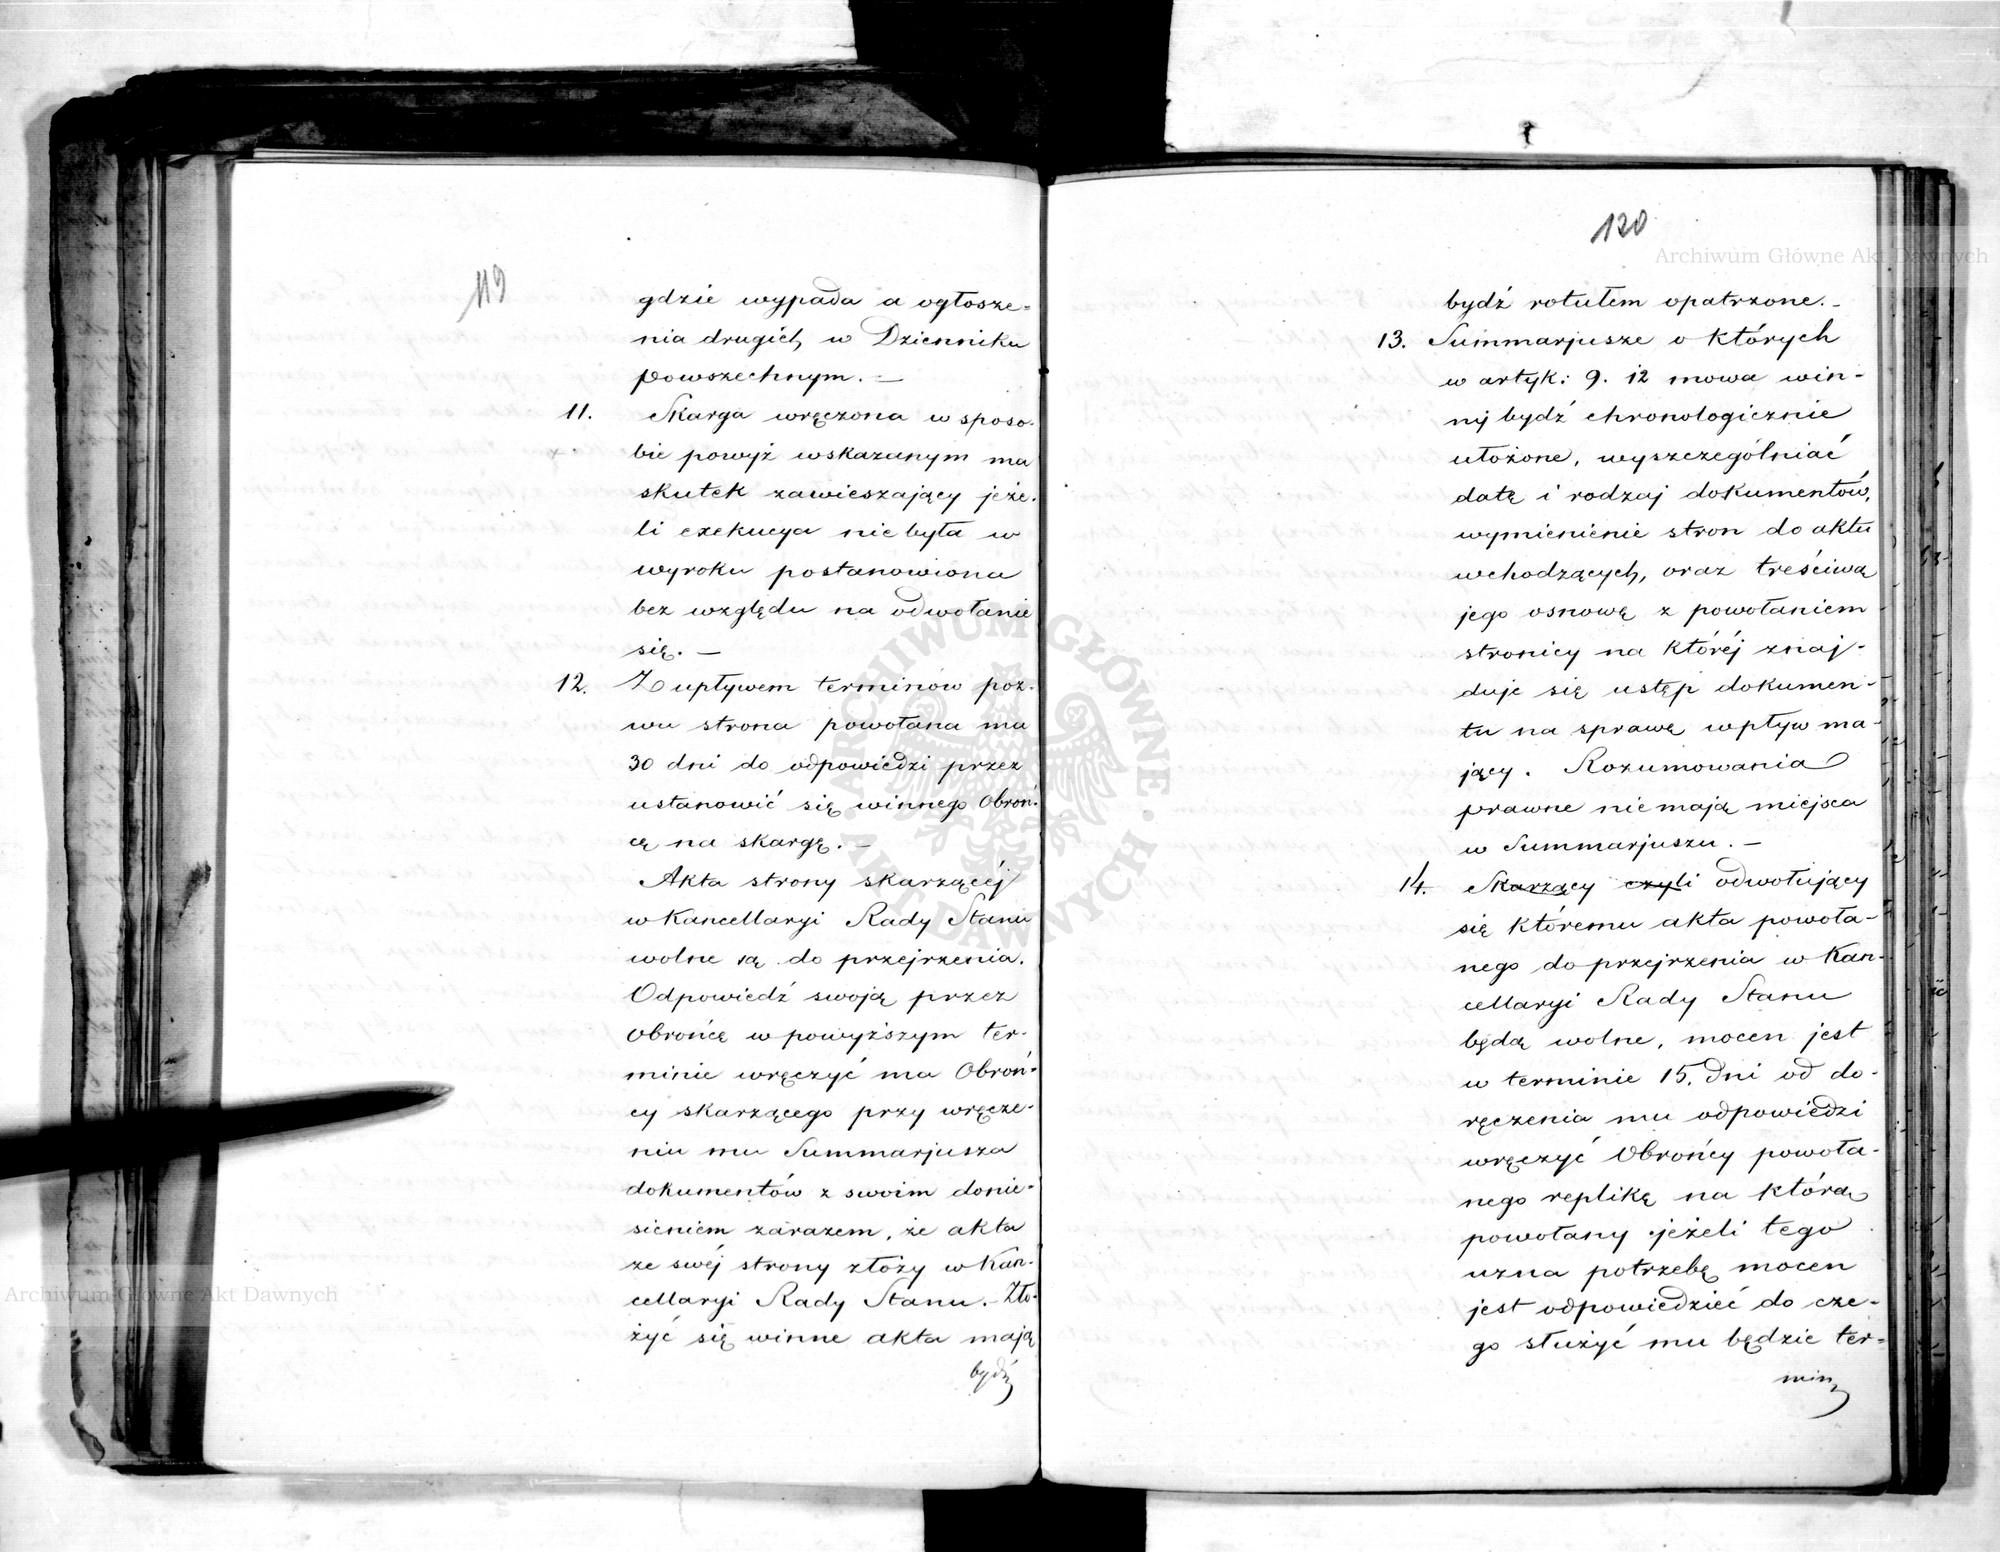 119
gdzie wypada a ogłosze-
nia drugich w Dzienniku
powszechnym. —
11. Skarga wręczona w sposo-
bie powyż wskazanym ma
skutek zawieszający jeże-
li exekucya nie była w
wyroku postanowiona
bez względu na odwołanie
się. —
12. Z upływem terminów poz-
wu strona powołana ma
30 dni do odpowiedzi przez
ustanowić się winnego Obroń-
cę na skargę. —
Akta strony skarzącéj
w Kancellaryi Rady Stanu
wolne są do przejrzenia.
Odpowiedź swoją przez
Obrońcę w powyższym ter-
minie wręczyć ma Obroń-
cy skarzącego przy wręcze-
niu mu Summarjusza
dokumentów z swoim donie-
sieniem zarazem, że akta
ze swéj strony złoży w Kan-
cellaryi Rady Stanu. — Zło-
żyć się winne akta mają
bydź
120
bydź rotułem opatrzone. —
13. Summarjusze o których
w artyk: 9. 12 mowa win-
ny bydź chronologicznie
ułożone, wyszczególniać
datę i rodzaj dokumentów,
wymienienie stron do aktu
wchodzących, oraz treściwą
jego osnowę z powołaniem
stronicy na któréj znaj-
duje się ustęp dokumen-
tu na sprawę wpływ ma-
jący. Rozumowania
prawne nie mają miejsca
w Summarjuszu. —
14. Skarzący czyli odwołujący
się któremu akta powoła-
nego do przejrzenia w Kan-
cellaryi Rady Stanu
będą wolne, mocen jest
w terminie 15. dni od do-
ręczenia mu odpowiedzi
wręczyć Obrońcy powoła-
nego replikę na którą
powołany jeżeli tego
uzna potrzebę mocen
jest odpowiedzieć do cze-
go służyć mu będzie ter-
min
Archiwum Główne Akt Dawnych
Archiwum Główne Akt Dawnych
ARCHIWUM GŁÓWNE AKT DAWNYCH